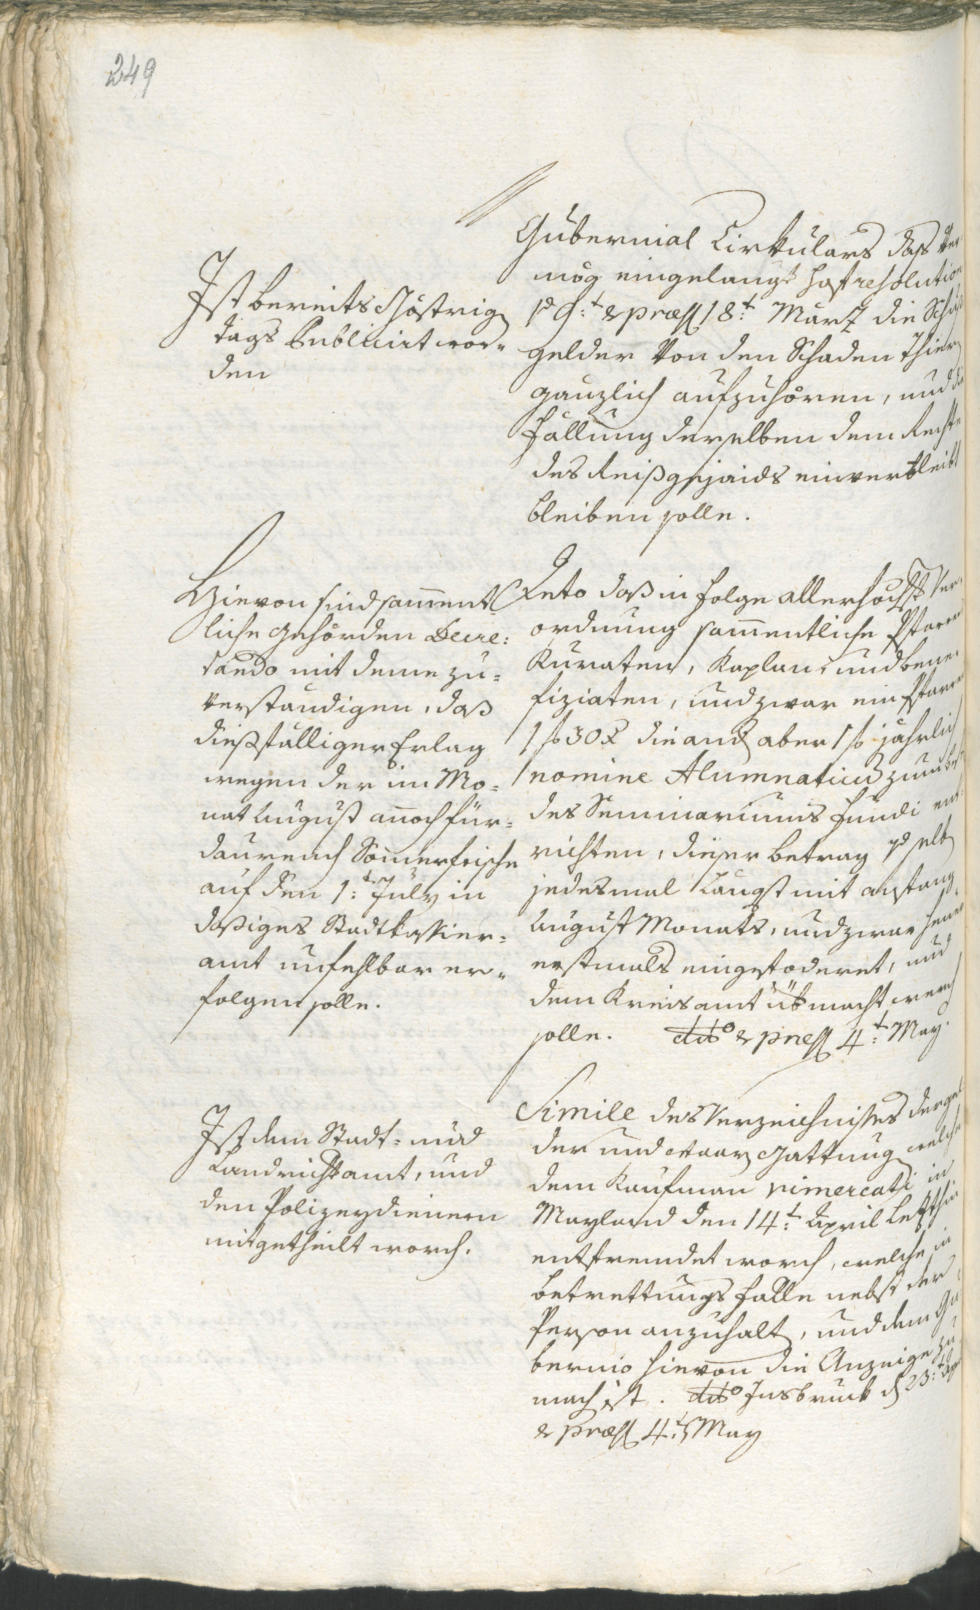 249
Ist bereits Höstrig
tags Publicirt wor-
den
Gubernial Cirkulars daß ver
mög eingelangt hofresolution
9:t & præs 18:t März die Schuß
gelder von den Schaden Thier
gänzlich aufzuhören, und die
fällung derselben dem Rechte
des Reißgejaids einverbleibt
bleiben solle.
Hievon sind sament
liche gehörden Decre:
tando mit deme zu-
verständigen, daß
dießfälliger Erlag
wegen der im Mo-
nat August annoch für-
daurend Somerfrische
auf den 1:t July in
dasiges Stadtkassier-
amt unfehlbar er-
folgen solle.
Deto daß in folge allerhöchst ver
ordnung sammentliche Pfarrer
Kuraten, Kaplan, und bene
fiziaten, und zwar ein Pfarrer
1 f 30 x die and aber 1 f jährlich
nomine Alumnatici zum
des Seminariums Fundi ent
richten, dieser betrag selb
jedesmal längst mit anfang
August Monats, und zwar heuer
erstmals eingefoderet, und
dem Kreisamt übmacht werd
solle. dito & præs 4:t May.
Ist dem Stadt- und
Landrichtamt, und
den Polizeydienern
mitgetheilt word.
Simile des Verzeichnißes der gel
der und waar Gattung welche
dem Kaufman vimercati in
Mayland den 14:t April letzthin
entfremdet word, welche in
betrettungs falle nebst der
Person anzuhalt, und dem Gu
bernio hievon die Anzeige zu
mach ist. dito Insbruck d 23:t Apr
& præs 4:t May